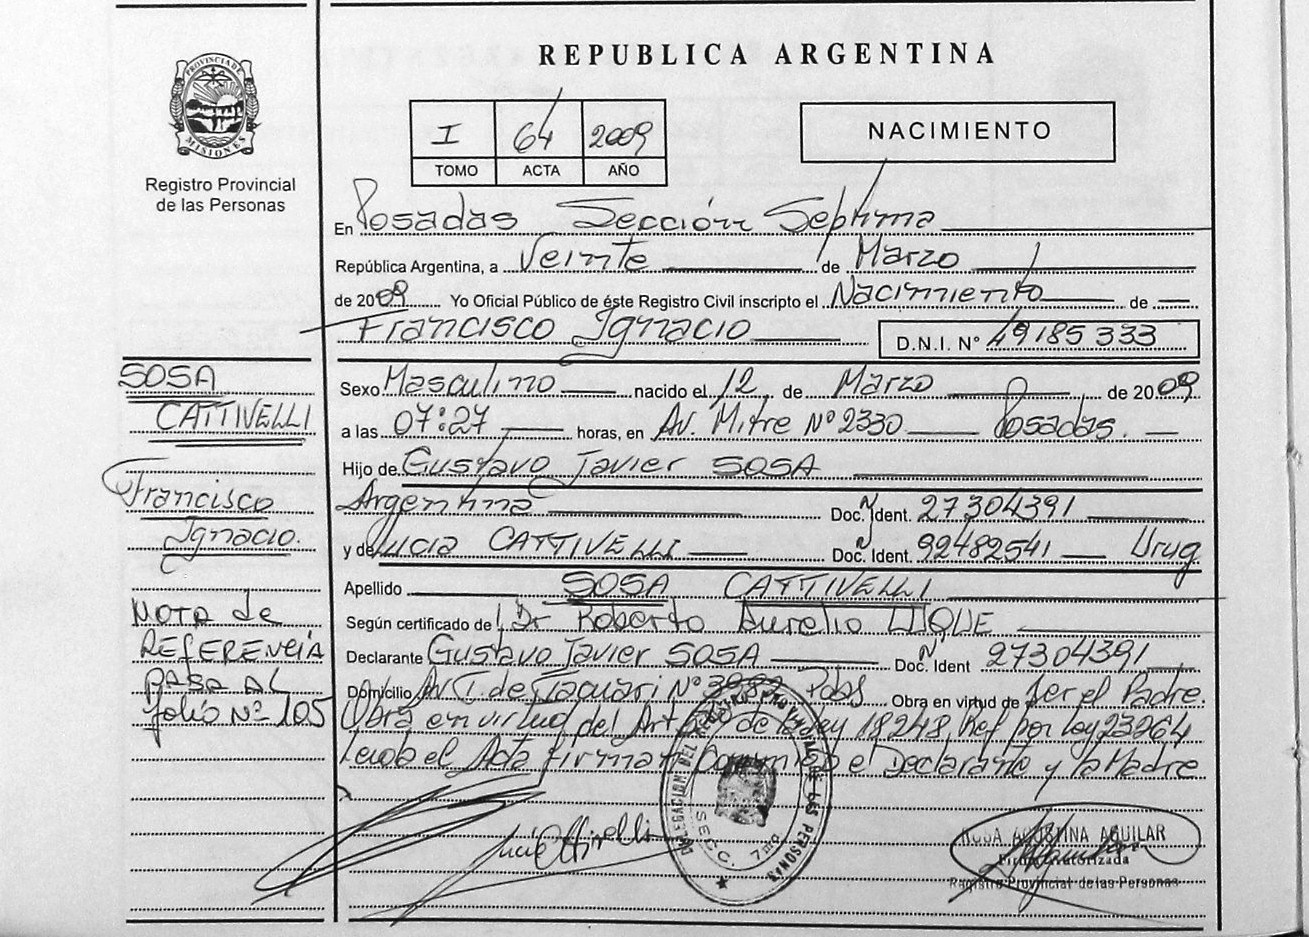 REPUBLICA ARGENTINA
PROVINCIA DE MISIONES
Registro Provincial
de las Personas
I 64 2009
TOMO ACTA AÑO
NACIMIENTO
En Posadas Sección Septima
República Argentina, a Veinte de Marzo
de 2009 Yo Oficial Público de éste Registro Civil inscripto el Nacimiento de
Francisco Ignacio D.N.I. N° 49185333
Sexo Masculino nacido el 12 de Marzo de 2009
a las 07:27 horas, en Av. Mitre Nº 2330 Posadas.
Hijo de Gustavo Javier SOSA
Argentina Doc. Ident. 27304391
y de Lucia CATTIVELLI Doc. Ident. 92482541 Urug
Apellido SOSA CATTIVELLI
Según certificado de Dr Roberto Aurelio
Declarante Gustavo Javier SOSA Doc. Ident 27304391
Domicilio Av. T. de Tacuari Nº Pdas Obra en virtud de Ser el Padre.
Obra en virtud del Art de la ley 18248, Ref por ley 23264
el Acta firman Conmigo el Declarante y la Madre
SOSA
CATTIVELLI
Francisco
Ignacio.
NOTA de
REFERENCIA
PASA AL
folio Nº 105
DELEGACION DEL REGISTRO PROVINCIAL DE LAS PERSONAS
SECC. 7ma
ROSA AGUSTINA AGUILAR
Firma Autorizada
Registro Provincial de las Personas